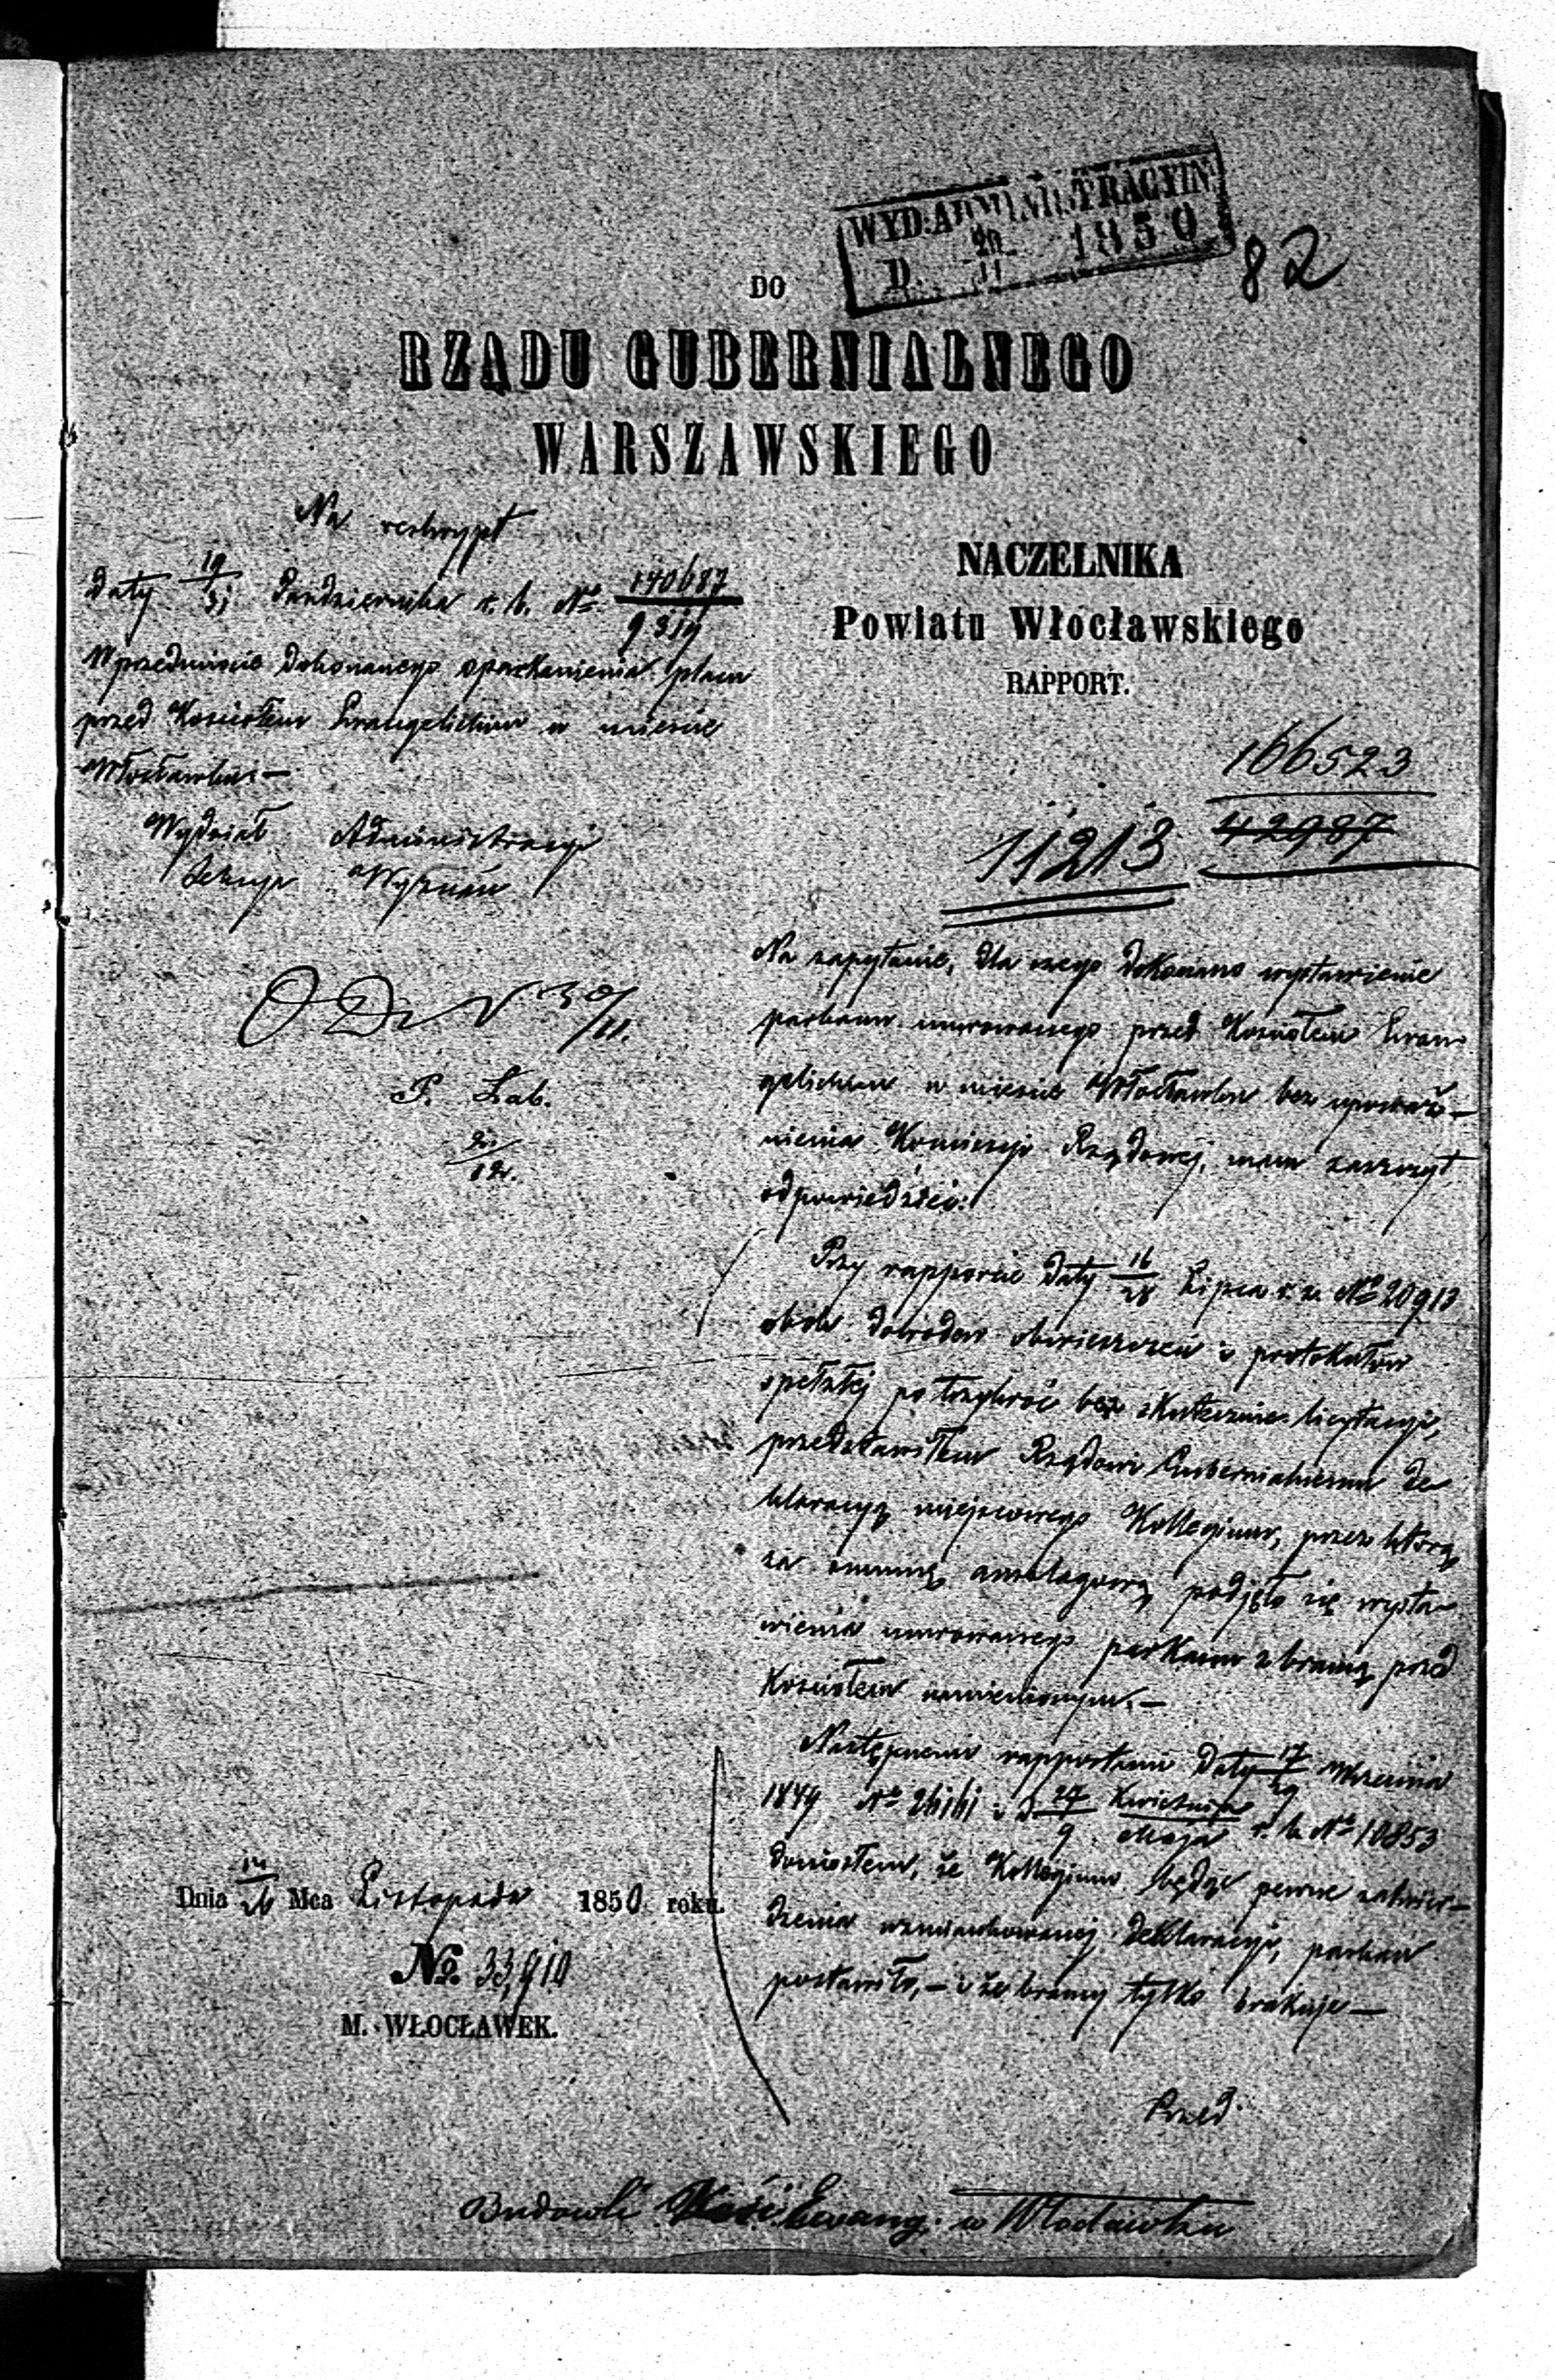 WYD: ADMINISTRACYIN:
D. 20/11 1850
82
DO
RZĄDU GUBERNIALNEGO
WARSZAWSKIEGO
Na reskrypt
daty 19/31 Października r. b. No 140687/9319
W przedmiocie dokonanego oparkanienia placu
przed Kościołem Ewangelickim w mieście
Włocławku.—
Wydział Administracyi
Sekcya Wyznań
NACZELNIKA
Powiatu Włocławskiego
RAPPORT.
166523
42987
11213
30/11.
P. Lab.
/12.
Na zapytanie, dla czego dokonano wystawienie
parkanu murowanego przed Kościołem Ewan-
gelickim w mieście Włocławku bez upoważ-
nienia Kommissyi Rządowej, mam zaszczyt
odpowiedzieć:
Przy rapporcie daty 16/28 Lipca r. z. No 20913
obok dowodów obwieszczeń i protokułów
spełzłej po trzykroć bez skutecznie licytacyi,
przedstawiłem Rządowi Gubernialnemu de-
klaracyą miejscowego Kollegium, przez którą
za summę anszlagową podjęło się wysta-
wienia murowanego parkanu z bramą przed
Kościołem namienionym.—
Następnemi rapportami daty 17/29 Września
1849 No 26161 i d 27/9 Kwietnia/Maja r. b. No 10853
doniosłem, że Kollegium będąc pewne zatwier-
dzenia wzmiankowanej deklaracyi, parkan
postawiło,— i że bramy tylko brakuje—
Dnia 14/26 Mca Listopada 1850 roku.
No. 33,910
M. WŁOCŁAWEK.
Przed.
Budowli Kość: Ewang: w Włocławku